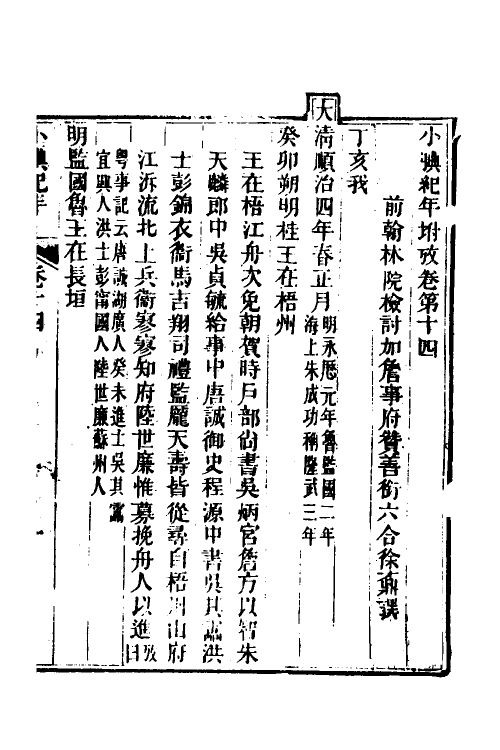 小腆紀年附攷卷第十四
前翰林院檢討加詹事府贊善銜六合徐鼒譔
丁亥我
大清順治四年春正月明永厯元年魯監國二年海上朱成功稱隆武三年
癸卯朔明桂王在梧州
王在梧江舟次免朝賀時戶部尚書吳炳宮詹方以智朱
天麟郎中吳貞毓給事中唐諴御史程源中書吳其靁洪
士彭錦衣衞馬吉翔司禮監龐天壽皆從尋自梧州由府
江泝流北上兵衞寥寥知府陸世廉惟募挽舟人以進攷曰
粵事記云唐諴湖廣人癸未進士吳其靁
宜興人洪士彭甯國人陸世廉蘇州人
明監國魯王在長垣
小腆紀年
卷十四